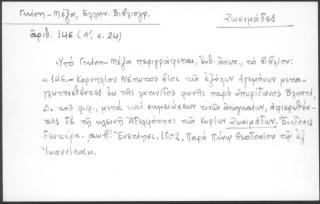 Γκίνη - Μέξα, Ελλην. Βιβλιογρ.
Ζωσιμάδες
ἀριθ. 146 (Α', σ. 24)
«Ὑπὸ Γκίνη - Μέξα περιγράφεται, ἔνθ. ἀνωτ., τὸ βιβλίον:
«146.- Κορνηλίου Νέπωτος βίοι τῶν ἐξόχων ἡγεμόνων μετα-
γλωττισθέντες ἐκ τῆς λατινίδος φωνῆς παρὰ Σπυρίδωνος Βλαντῆ,
Δ. τοῦ φ.φ., μετὰ καὶ σημειώσεων τινῶν ἀναγκαίων, ἀφιερωθέν-
τες δὲ τῇ κλεινῇ Ἀδελφότητι τῶν Κυρίων Ζωσιμάδων. Ἔκδοσις
δευτέρα. αωβ'. Ἐνετίησι. 1802. Παρὰ Πάνῳ Θεοδοσίου τῷ ἐξ
Ἰωαννίνων».